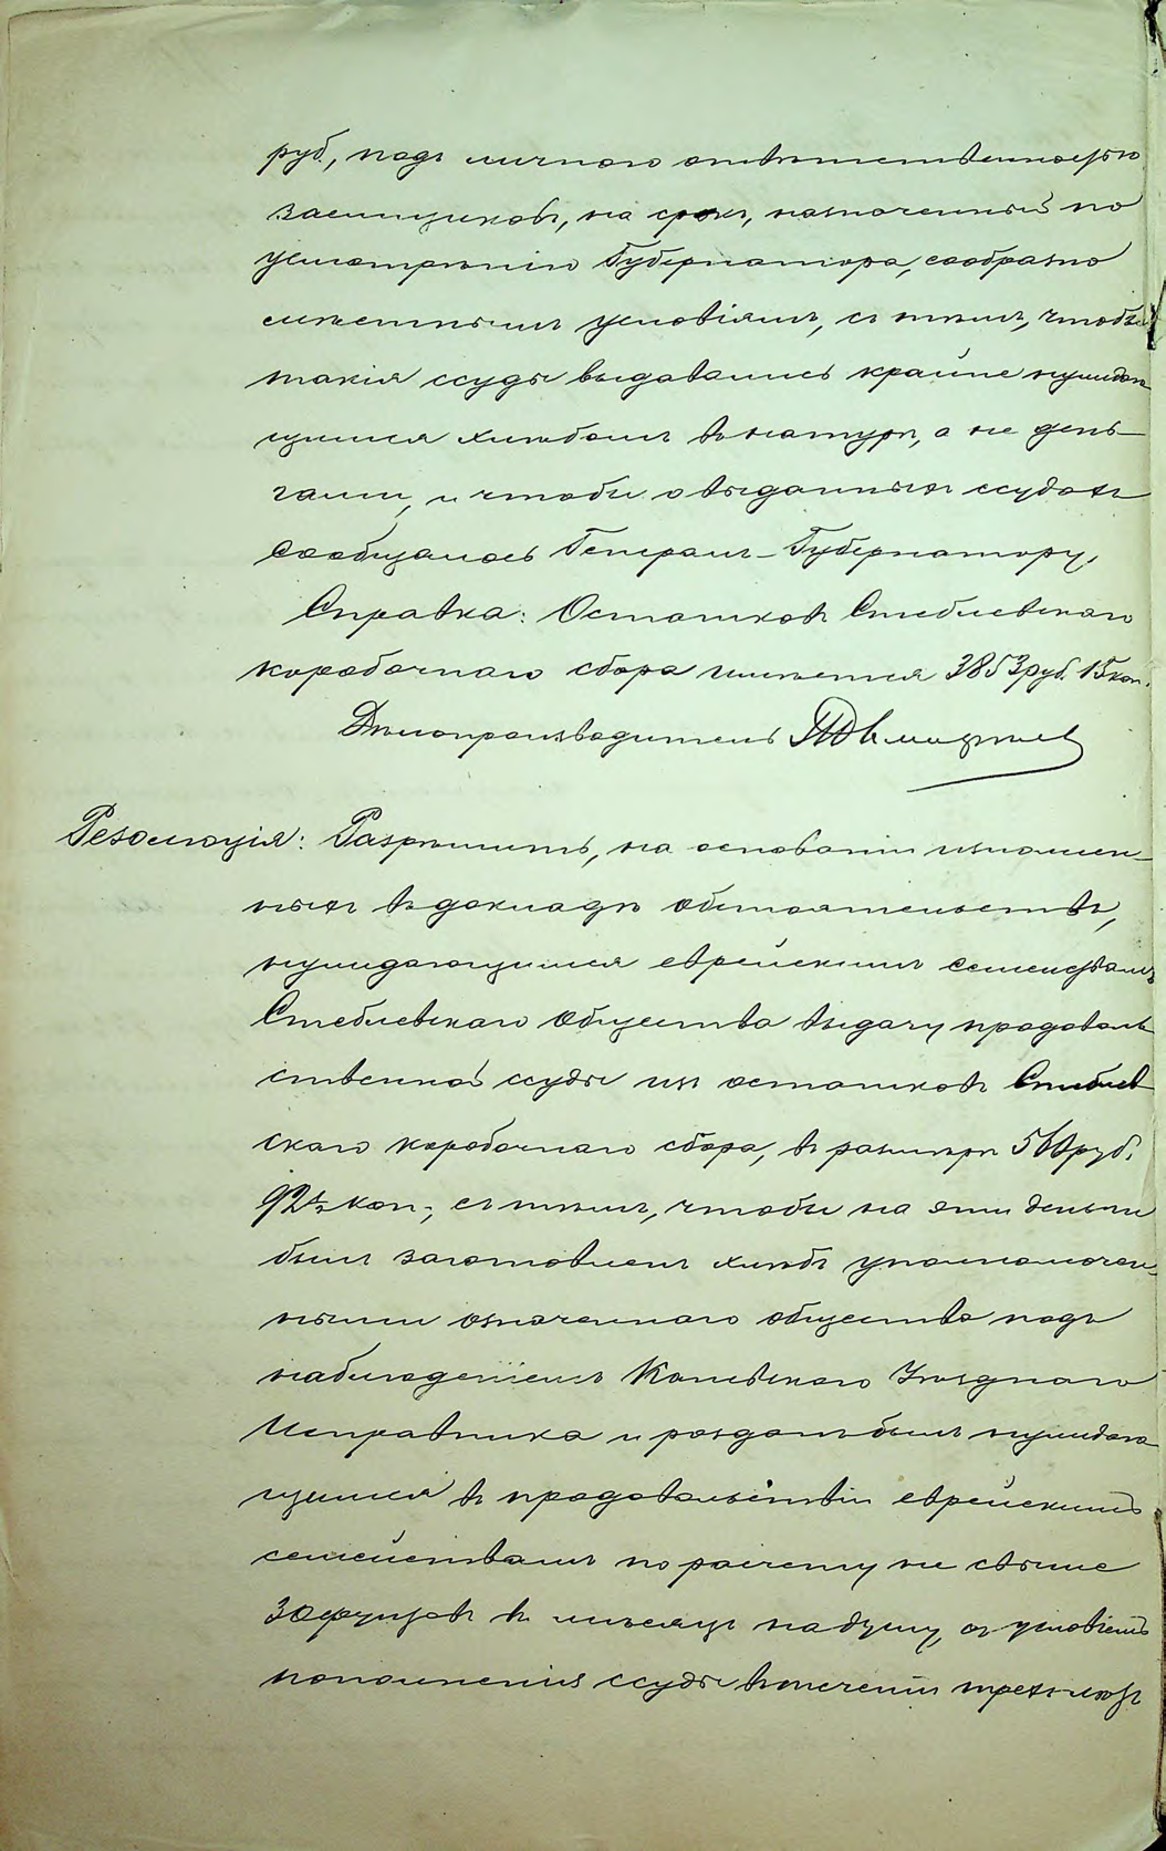 руб., подъ личною отвѣтственностью
заемщиковъ, на срокъ, назначенный по
усмотрѣнію Губернатора, сообразно
мѣстнымъ условіямъ, съ тѣмъ, чтобы
такія ссуды выдавались крайне нуждаю
щимся хлѣбомъ въ натурѣ, а не день-
гами, и чтобы о выданныхъ ссудахъ
сообщалось Генералъ-Губернатору.
Справка: Остатковъ Стеблевскаго
коробочнаго сбора имѣется 3853 руб. 15 коп.
Дѣлопроизводитель
Резолюція: Разрѣшить, на основаніи изложен-
ныхъ въ докладѣ обстоятельствъ,
нуждающимся еврейскимъ семействамъ
Стеблевскаго общества выдачу продоволь
ственной ссуды изъ остатковъ Стеблев
скаго коробочнаго сбора, въ размѣрѣ 560 руб.
92½ коп., съ тѣмъ, чтобы на эти деньги
былъ заготовленъ хлѣбъ уполномочен-
ными означеннаго общества подъ
наблюденіемъ Каневскаго Уѣзднаго
Исправника и розданъ былъ нуждаю
щимся въ продовольствіи еврейскимъ
семействамъ по расчету не свыше
30 фунтовъ въ мѣсяцъ на душу, съ условіемъ
пополненія ссуды въ теченіи трехъ лѣтъ